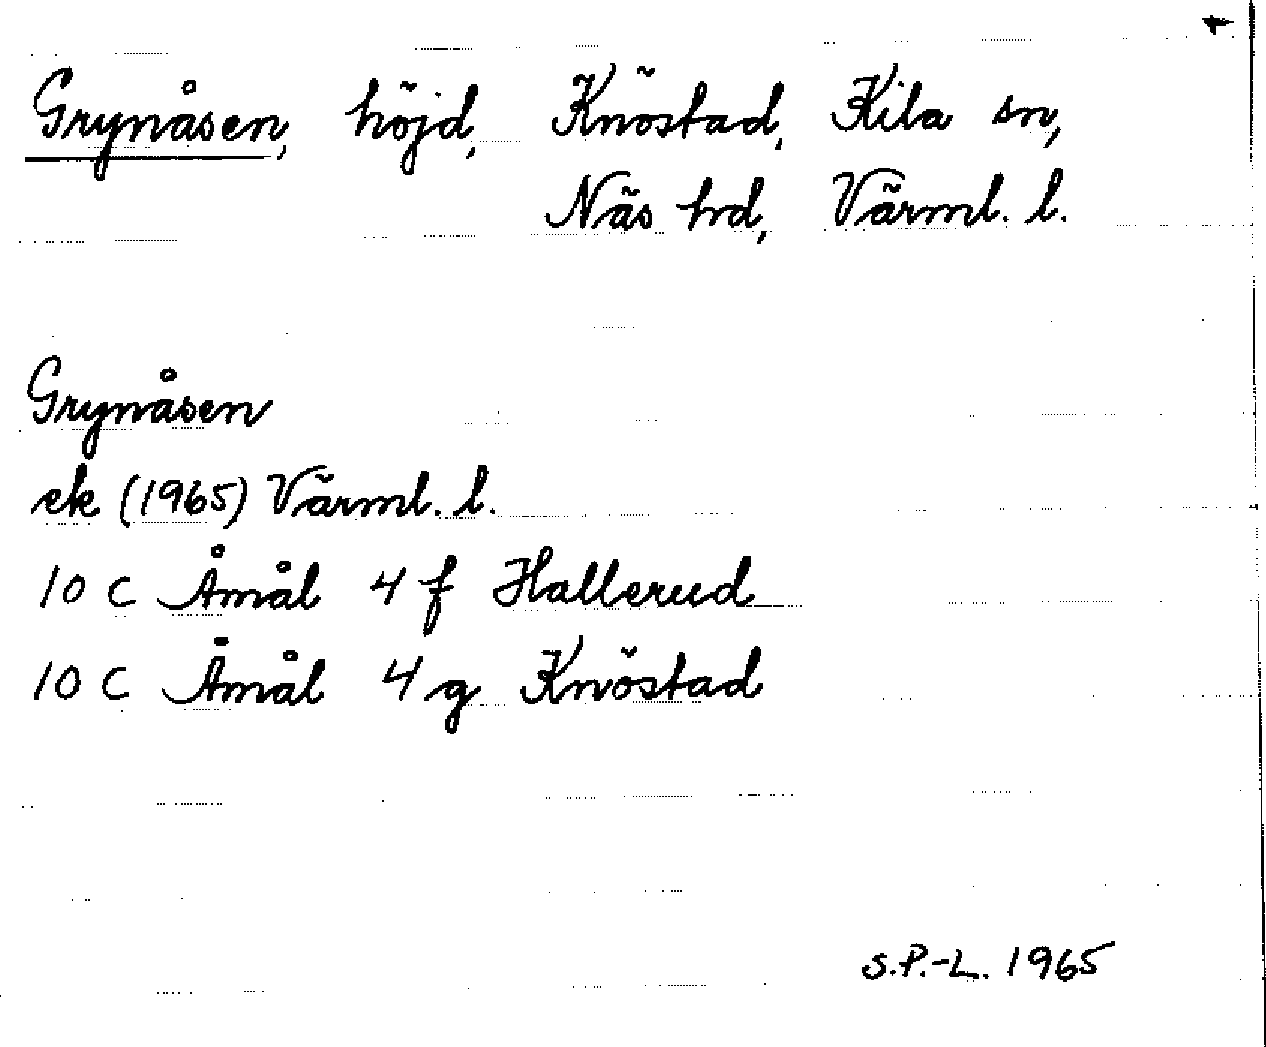 Grynåsen, höjd, Knöstad, Kila sn,
Näs hd, Värml. l.
Grynåsen
ek (1965) Värml. l.
10 C Åmål 4 f Hallerud
10 C Åmål 4 g Knöstad
S.P.-L. 1965